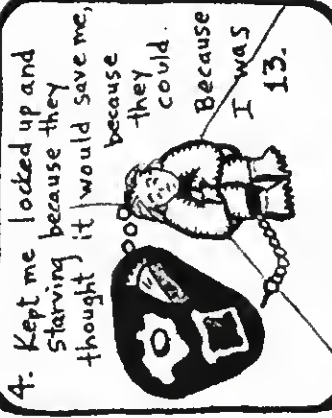 4. Kept me locked up and
starving because they
thought it would save me,
because
they
could.
Because
I was
13.